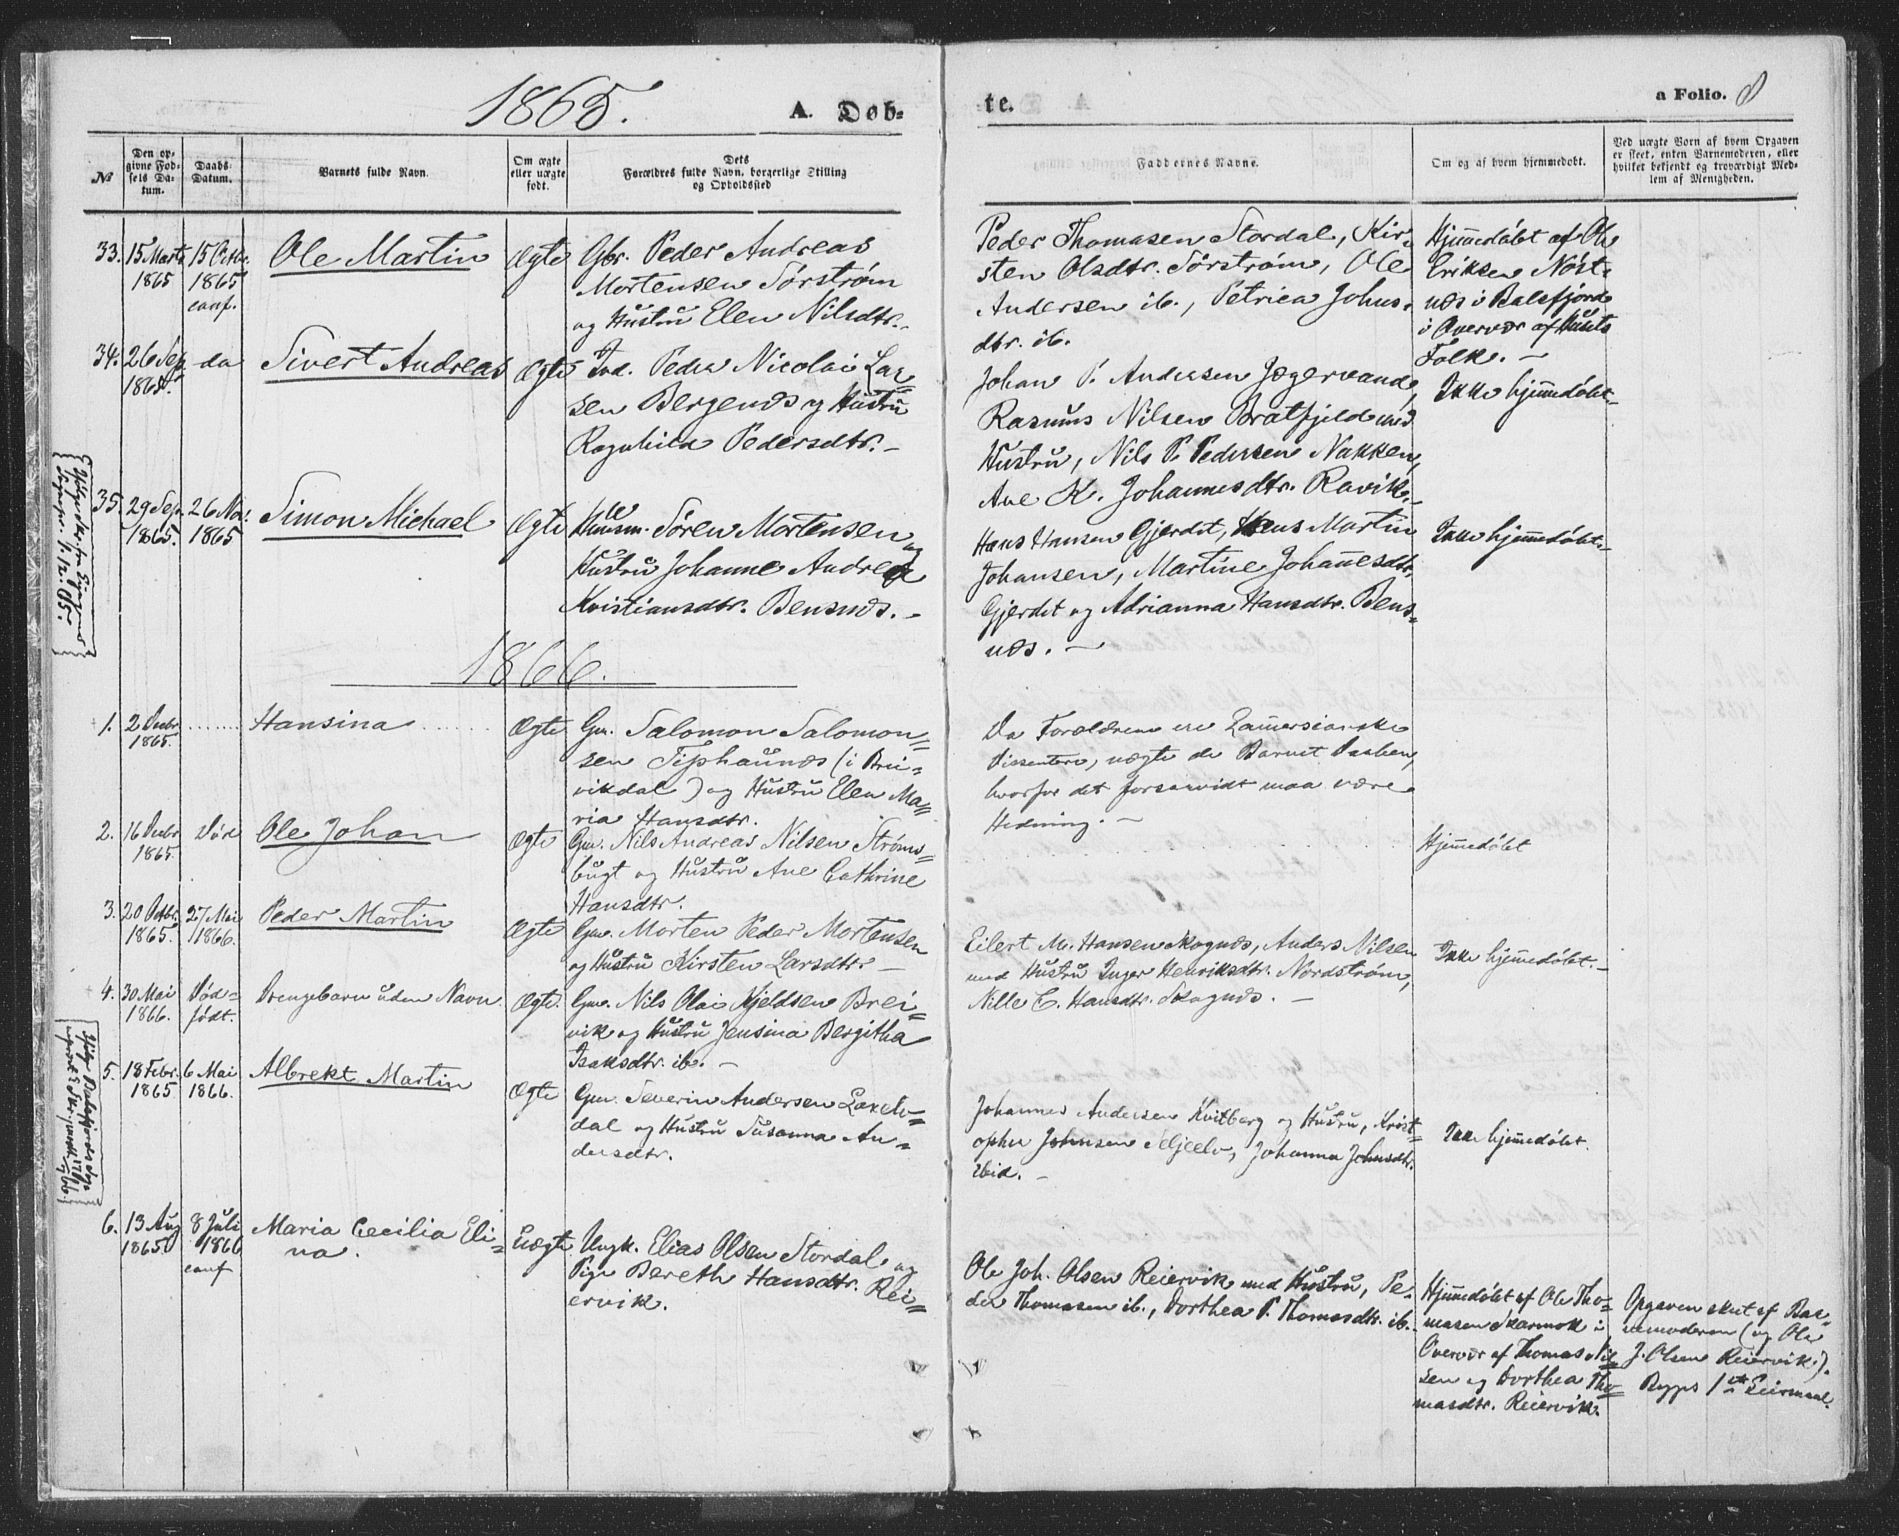 1865.
A. Døb-
te.
a Folio. 8
№
Den op-
givne Fød-
sels Da-
tum.
Daabs-
Datum.
Barnets fulde Navn.
Om ægte
eller uægte
født.
Dets
Forældres fulde Navn, borgerlige Stilling
og Opholdssted
Faddernes Navne.
Om og af hvem hjemmedøbt.
Ved uægte Børn af hvem Opgaven
er skeet, enten Barnemoderen, eller
hvilket bekjendt og troværdigt Med-
lem af Menigheden.
33.
15 Marts
1865
15 Octbr.
1865
conf.
Ole Martin
Ægte
Gbr. Peder Andreas
Mortensen Sørstrøm
og Hustru Elen Nilsdtr.
Peder Thomasen Stordal, Kir-
sten Olsdtr. Sørstrøm, Ole
Andersen ib., Petrica Johns-
dtr. ib.
Hjemmedøbt af Ole
Eriksen Nøst-
næs i Balsfjord
i Overvær af Husets
Folk. –
34.
26 Sep.
1865.
do
Sivert Andreas
Ægte
Ind. Peder Nicolai Lar=
sen Bergenæs og Hustru
Ragnhild Pedersdtr. –
Johan P. Andersen Jægervand,
Rasmus Nilsen Bratfjeld med
Hustru, Nils P. Pedersen Nakken,
Ane K. Johannesdtr. Ravik. –
Ikke hjemmedøbt. –
35.
29 Sep.
1865.
26 Nov.
1865
Simon Michael
Ægte
Huusm. Søren Mortensen og
Hustru Johanne Andrea
Kristiansdtr. Bensnæs. –
Hans Hansen Gjerdet, Hans Martin
Johansen, Martine Johannesdtr.
Gjerdet og Adrianna Hansdtr. Bens-
næs. –
Ikke hjemmedøbt. –
1866.
1.
2 Decbr
1865.
Hansina
Ægte
Gm. Salomon Salomon=
sen Tiphaunæs (i Brei=
vikdal) og Hustru Elen Ma=
ria Hansdtr.
Da Forældrene ere Lamersianske
Dissentere, nægte de Barnet Daaben,
hvorfor det forsaavidt maa være
Hedning. –
2.
16 Decbr
1865.
død
Ole Johan
Ægte
Gm. Nils Andreas Nilsen Strøms=
bugt og Hustru Ane Cathrine
Hansdtr.
Hjemmedøbt
3.
20 Octbr.
1865.
27 Mai
1866.
Peder Martin
Ægte
Gm. Morten Peder Mortensen
og Hustru Kirsten Larsdtr. –
Eilert M. Hansen Skognæs, Anders Nilsen
med Hustru Inger Henriksdtr. Nordstrøm,
Nille C. Hansdtr. Skognæs. –
Ikke hjemmedøbt. –
4.
30 Mai
1866.
Død=
født.
Drengebarn uden Navn
Ægte.
Gm. Nils Olai Kjeldsen Brei=
vik og Hustru Jensina Bergitha
Isaksdtr. ib. –
5.
18 Febr.
1865
6 Mai
1866.
Albrekt Martin
Ægte
Gm. Severin Andersen Laxelv=
dal og Hustru Susanna An=
dersdtr.
Johannes Andersen Kvitberg og Hustru, Krist=
opher Johnsen Meljeelv, Johanna Johnsdtr.
ibid. –
Ikke hjemmedøbt.
6.
13 Aug
1865
8 Juli
1866
conf
Maria Cecilia Eli=
na.
Uægte
Ungk. Elias Olsen Stordal og
Pige Bereth Hansdtr. Rei=
ervik.
Ole Joh. Olsen Reiervik med Hustru, Pe-
der Thomasen ib., Dorthea P. Thomasdtr. ib.
Hjemmedøbt af Ole Tho=
masen Skarmok i
Overvær af Thomas Nil=
sen og Dorthea Tho=
masdtr. Reiervik.
Opgaven skeet af Bar=
nemoderen (og Ole
J. Olsen Reiervik).
Begges 1ste Leiermaal.